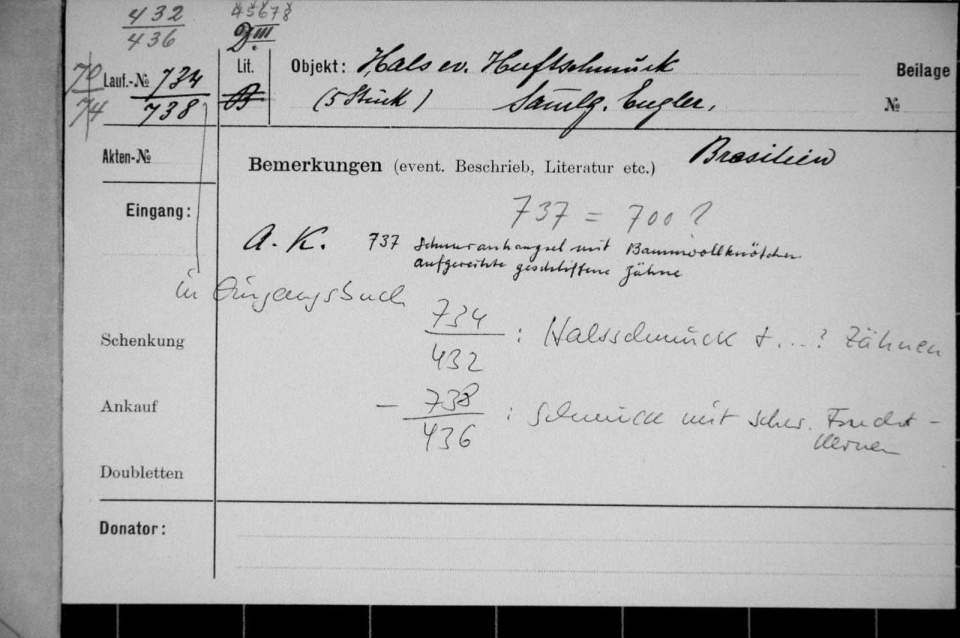 432
436
45678
D.III
70
74
Lauf.-№ 734
738
Lit.
B
Objekt: Hals ev. Hüftschmuck
(5 Stück) Samlg. Engler,
Beilage
№
Akten-№
Bemerkungen (event. Beschrieb, Literatur etc.) Brasilien
Eingang:
737 = 700?
A. K. 737 Schnuranhängsel mit Baumwollknötchen
aufgereihte geschliffene Zähne
in Eingangsbuch
734
432 : Halsschmuck + ...? Zähnen
Schenkung
Ankauf
- 738
436 : Schmuck mit schw. Frucht-
kernen
Doubletten
Donator: